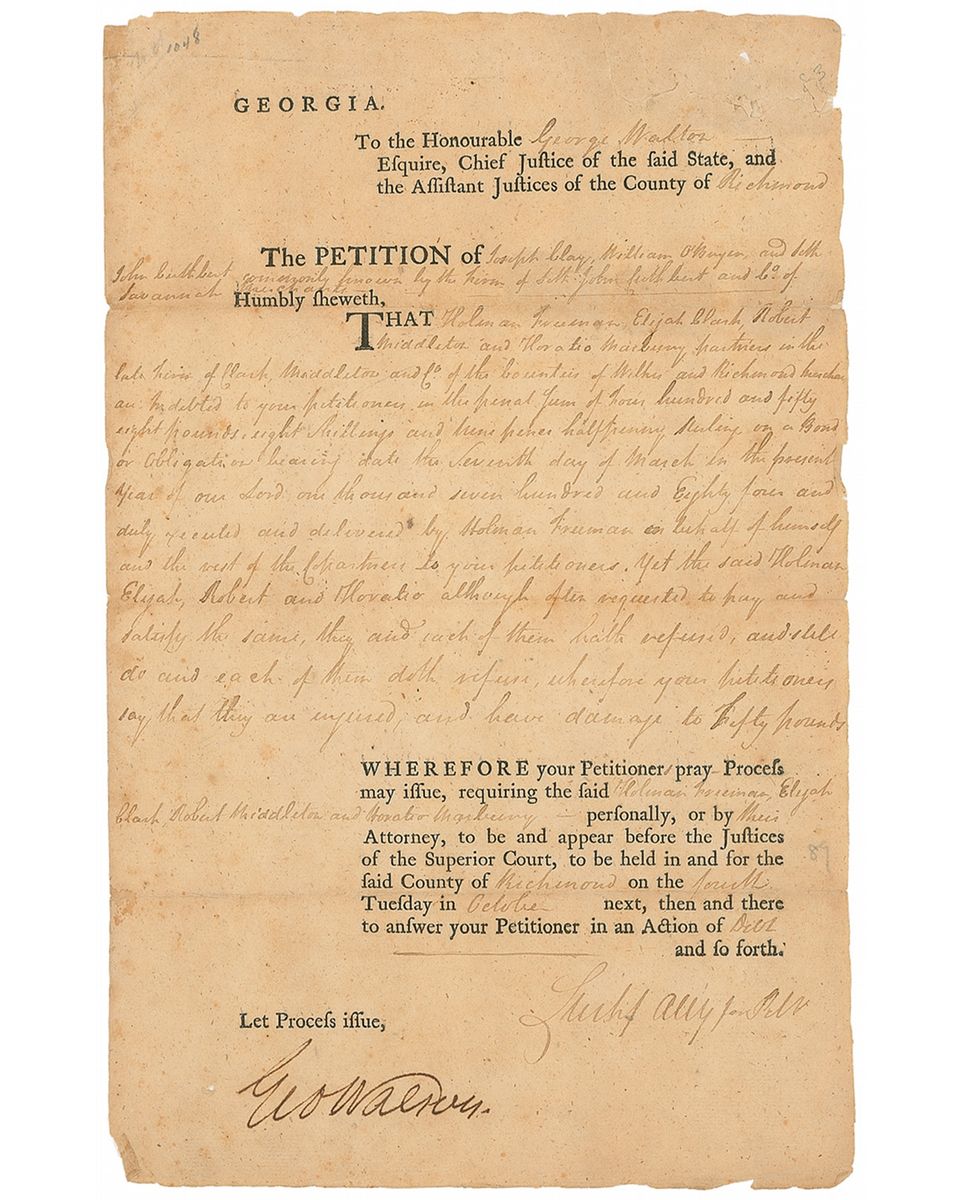 1048
GEORGIA.
To the Honourable George Walton
Eſquire, Chief Juſtice of the ſaid State, and
the Aſſiſtant Juſtices of the County of Richmond
The PETITION of Joseph Clay, William O'Bryen, and Seth
John Cuthbert commonly known by the firm of Seth John Cuthbert and Co. of
Savannah Merchants
Humbly ſheweth,
THAT Holman Freeman, Elijah Clark, Robert
Middleton and Horatio Marbury partners in the
late firm of Clark, Middleton and Co. of the Counties of Wilkes and Richmond
are Indebted to your petitioners in the penal Sum of four hundred and fifty
eight pounds, eight Shillings and nine pence half penny Sterling on a Bond
or Obligation bearing date the Seventh day of March in the present
Year of our Lord one thousand seven hundred and Eighty four and
duly executed and delivered by Holman Freeman on behalf of himself
and the rest of the Copartners to your petitioners. Yet the said Holman
Elijah, Robert and Horatio although often requested to pay and
satisfy the same, they and each of them hath refused, and still
do and each of them doth refuse, wherefore your petitioners
say, that they are injured, and have damage to Fifty pounds
WHEREFORE your Petitioners pray Proceſs
may iſſue, requiring the ſaid Holman Freeman, Elijah
Clark, Robert Middleton and Horatio Marbury — perſonally, or by their
Attorney, to be and appear before the Juſtices
of the Superior Court, to be held in and for the
ſaid County of Richmond on the fourth
Tueſday in October next, then and there
to anſwer your Petitioner in an Action of Debt
and ſo forth.
Let Proceſs iſſue,
Geo Walton.
87